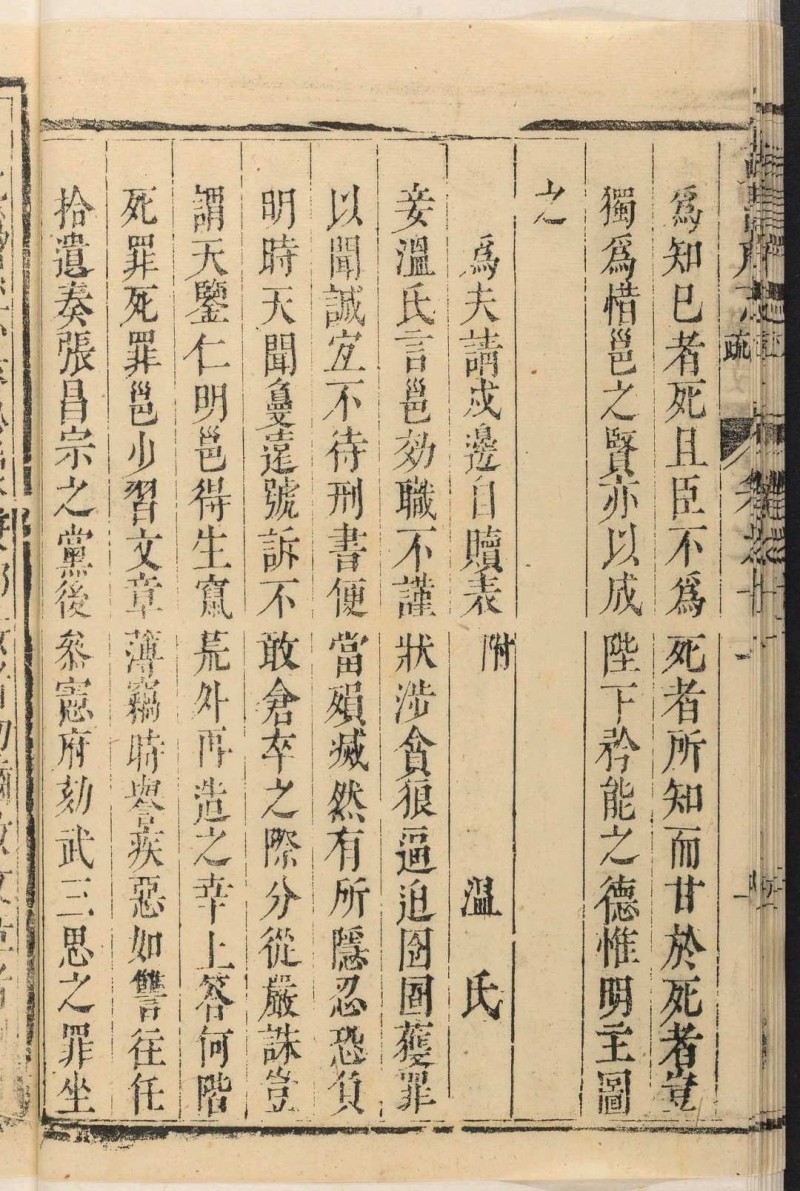 爲知已者死且臣不爲死者所知而甘於死者豈
獨爲惜邕之賢亦以成陛下矜能之德惟明主圖
之
爲夫請戍邊自贖表 附 溫氏
妾溫氏言邕効職不謹狀涉貪狠逼迫囹圄獲罪
以聞誠宜不待刑書便當殞滅然有所隱忍恐負
明時天聞敻遠號訴不敢倉卒之際分從嚴誅豈
謂天鑒仁明邕得生竄荒外再造之幸上答何階
死罪死罪邕少習文章薄竊時譽疾惡如讐往任
拾遺奏張昌宗之黨後叅憲府劾武三思之罪坐